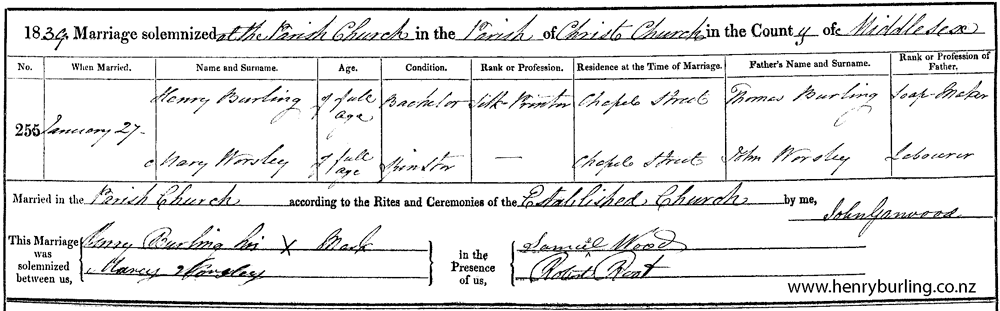 1839 Marriage solemnized at the Parish Church in the Parish of Christ Church in the County of Middlesex
No. When Married. Name and Surname. Age. Condition. Rank or Profession. Residence at the Time of Marriage. Father's Name and Surname. Rank or Profession of Father.
255 January 27 Henry Burling of full age Bachelor Silk Printer Chapel Street Thomas Burling Soap-Maker
Mary Worsley of full age Spinster — Chapel Street John Worsley Labourer
Married in the Parish Church according to the Rites and Ceremonies of the Established Church by me, John Garwood
This Marriage was solemnized between us, Henry Burling his X Mark in the Presence of us, Samuel Wood
Mary Worsley Robert
www.henryburling.co.nz